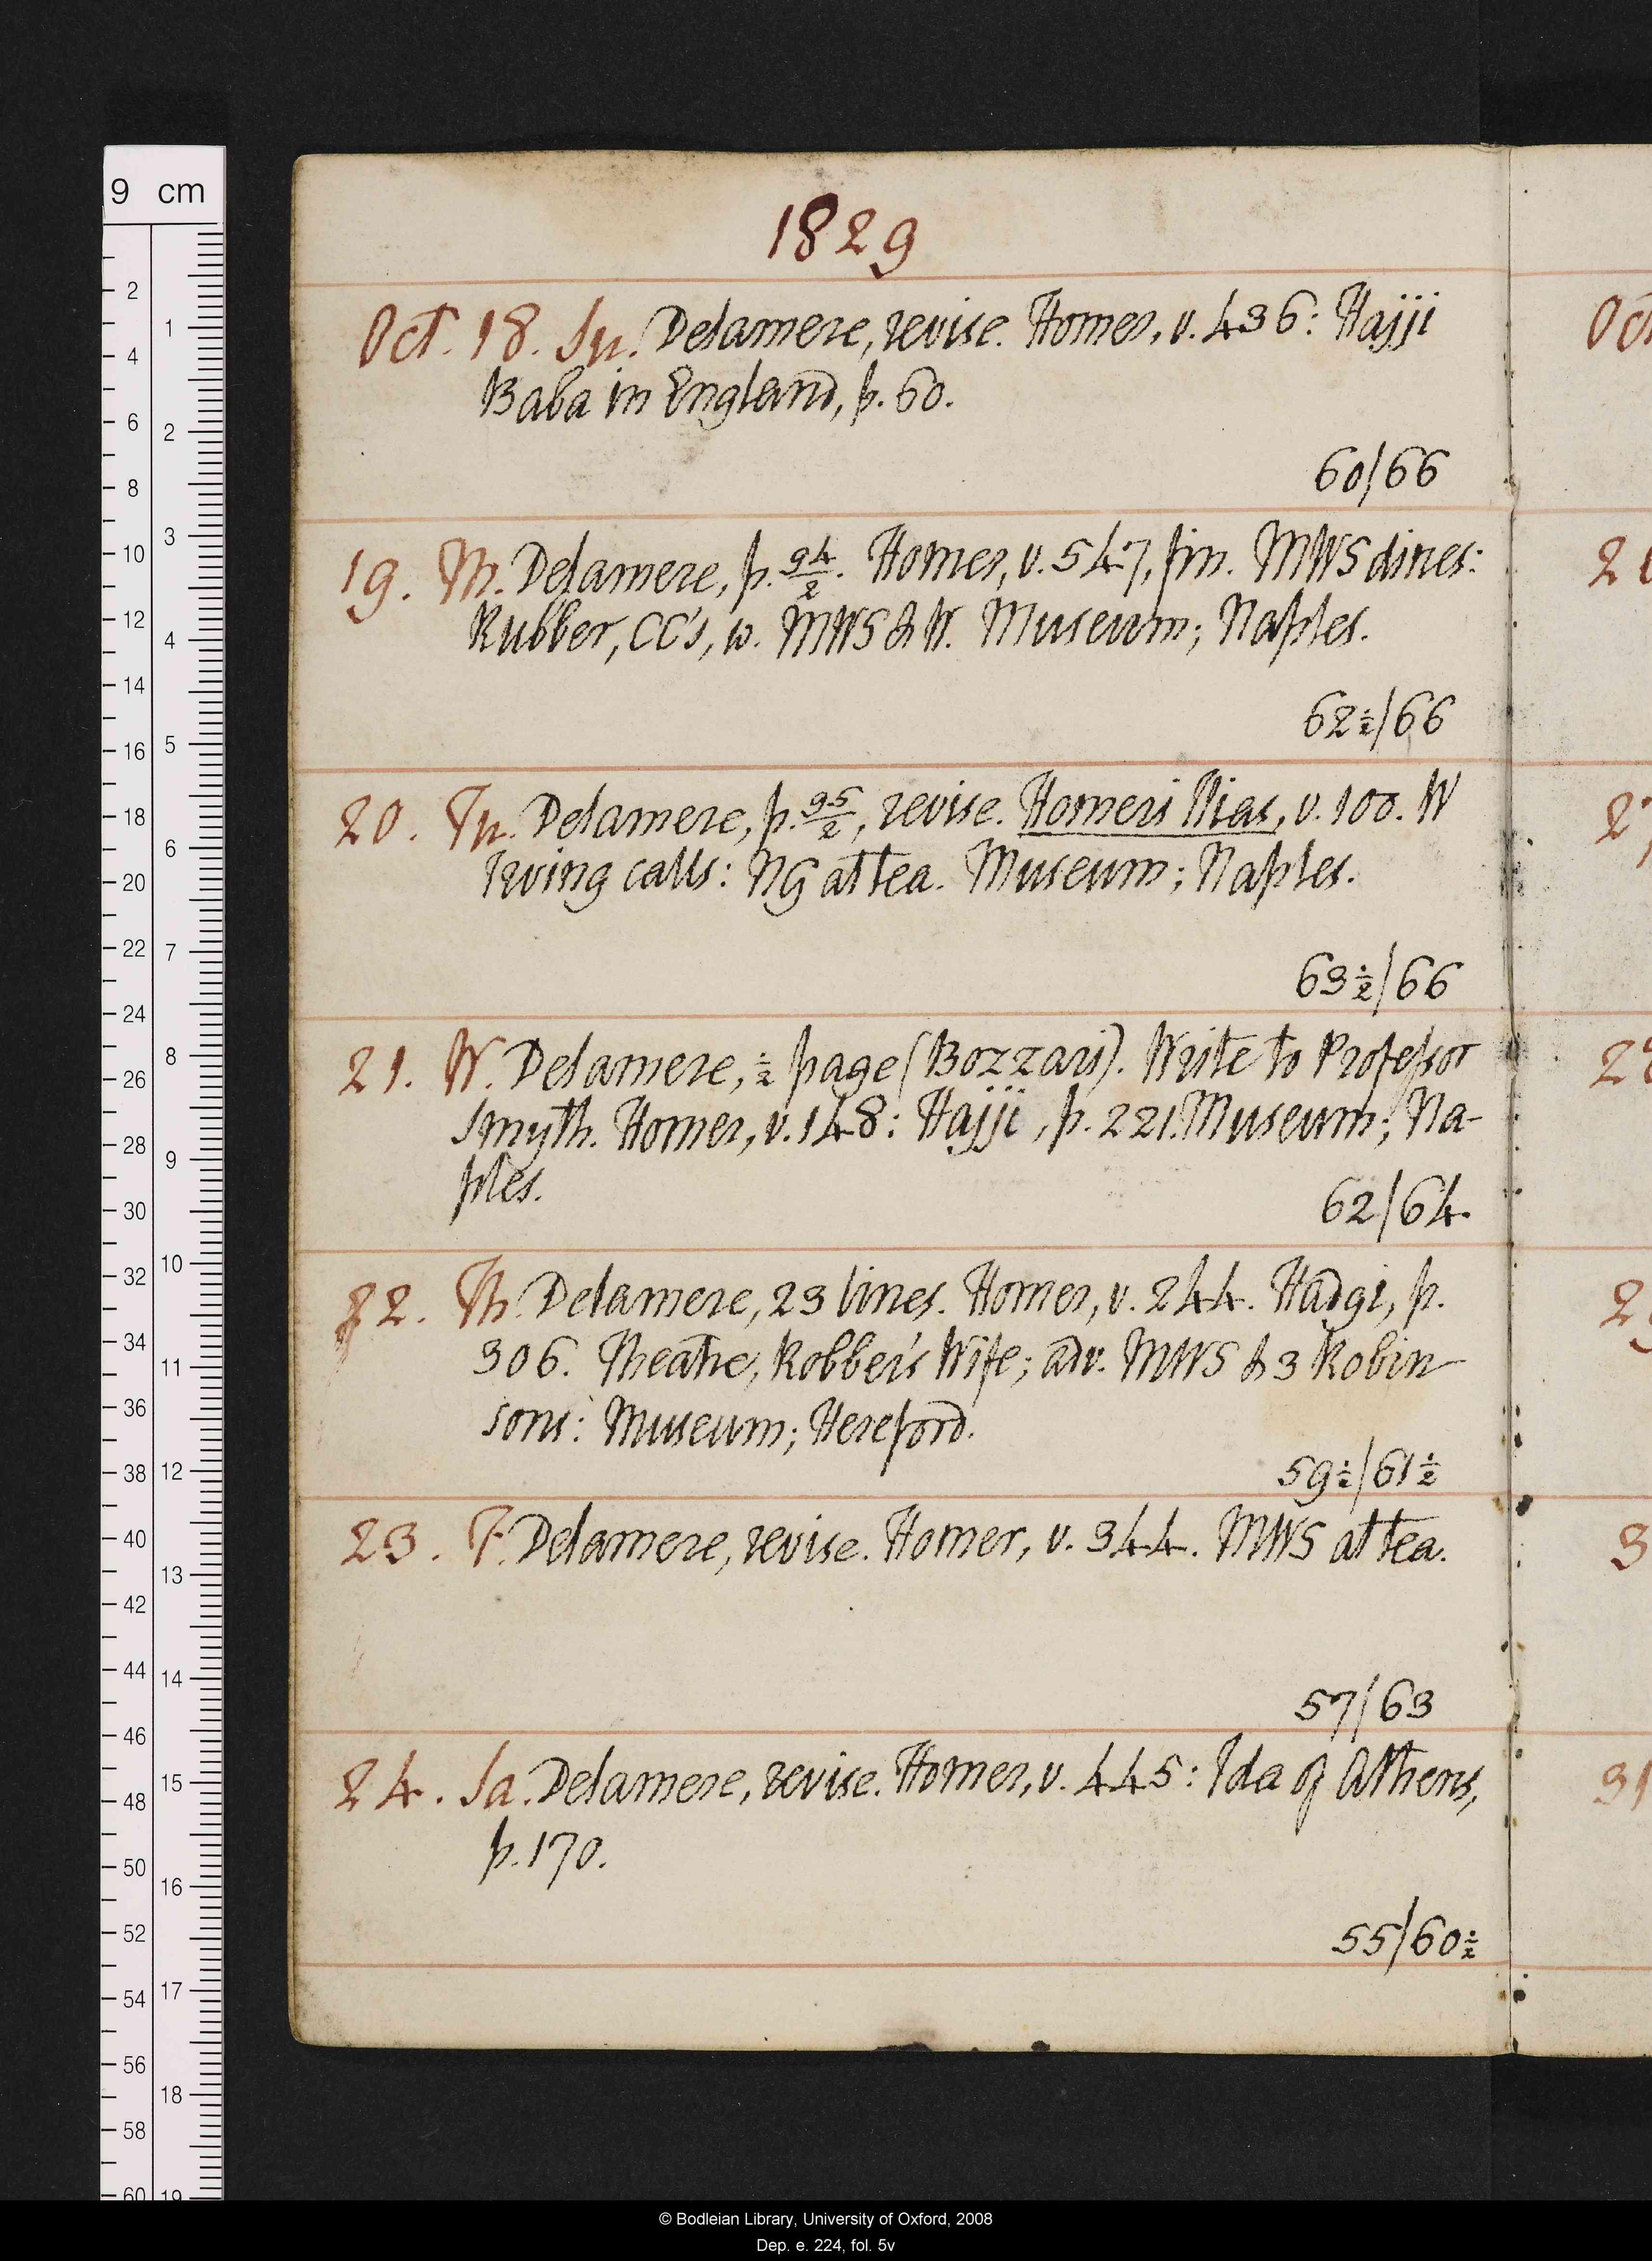 1829
Oct. 18. Su. Delamere, revise. Homer, v. 436: Hajji
Baba in England, p. 60.
60/66
19. M. Delamere, p. 94/2. Homer, v. 547, fin. MWS dines:
Rubber, CC's, w. MWS & W. Museum; Naples.
62½/66
20. Tu. Delamere, p. 95/2, revise. Homeri Ilias, v. 100. W
Irving calls: NG at tea. Museum; Naples.
63½/66
21. W. Delamere, ½ page (Bozzari). Write to Professor
Smyth. Homer, v. 148: Hajji, p. 221. Museum; Na-
ples.
62/64.
22. Th. Delamere, 23 lines. Homer, v. 244. Hadgi, p.
306. Theatre, Robber's Wife; adv. MWS & 3 Robin-
sons: Museum; Hereford.
59½/61½
23. F. Delamere, revise. Homer, v. 344. MWS at tea.
57/63
24. Sa. Delamere, revise. Homer, v. 445: Ida of Athens,
p. 170.
55/60½
9 cm
2
4
6
8
10
12
14
16
18
20
22
24
26
28
30
32
34
36
38
40
42
44
46
48
50
52
54
56
58
60
1
2
3
4
5
6
7
8
9
10
11
12
13
14
15
16
17
18
19
© Bodleian Library, University of Oxford, 2008
Dep. e. 224, fol. 5v